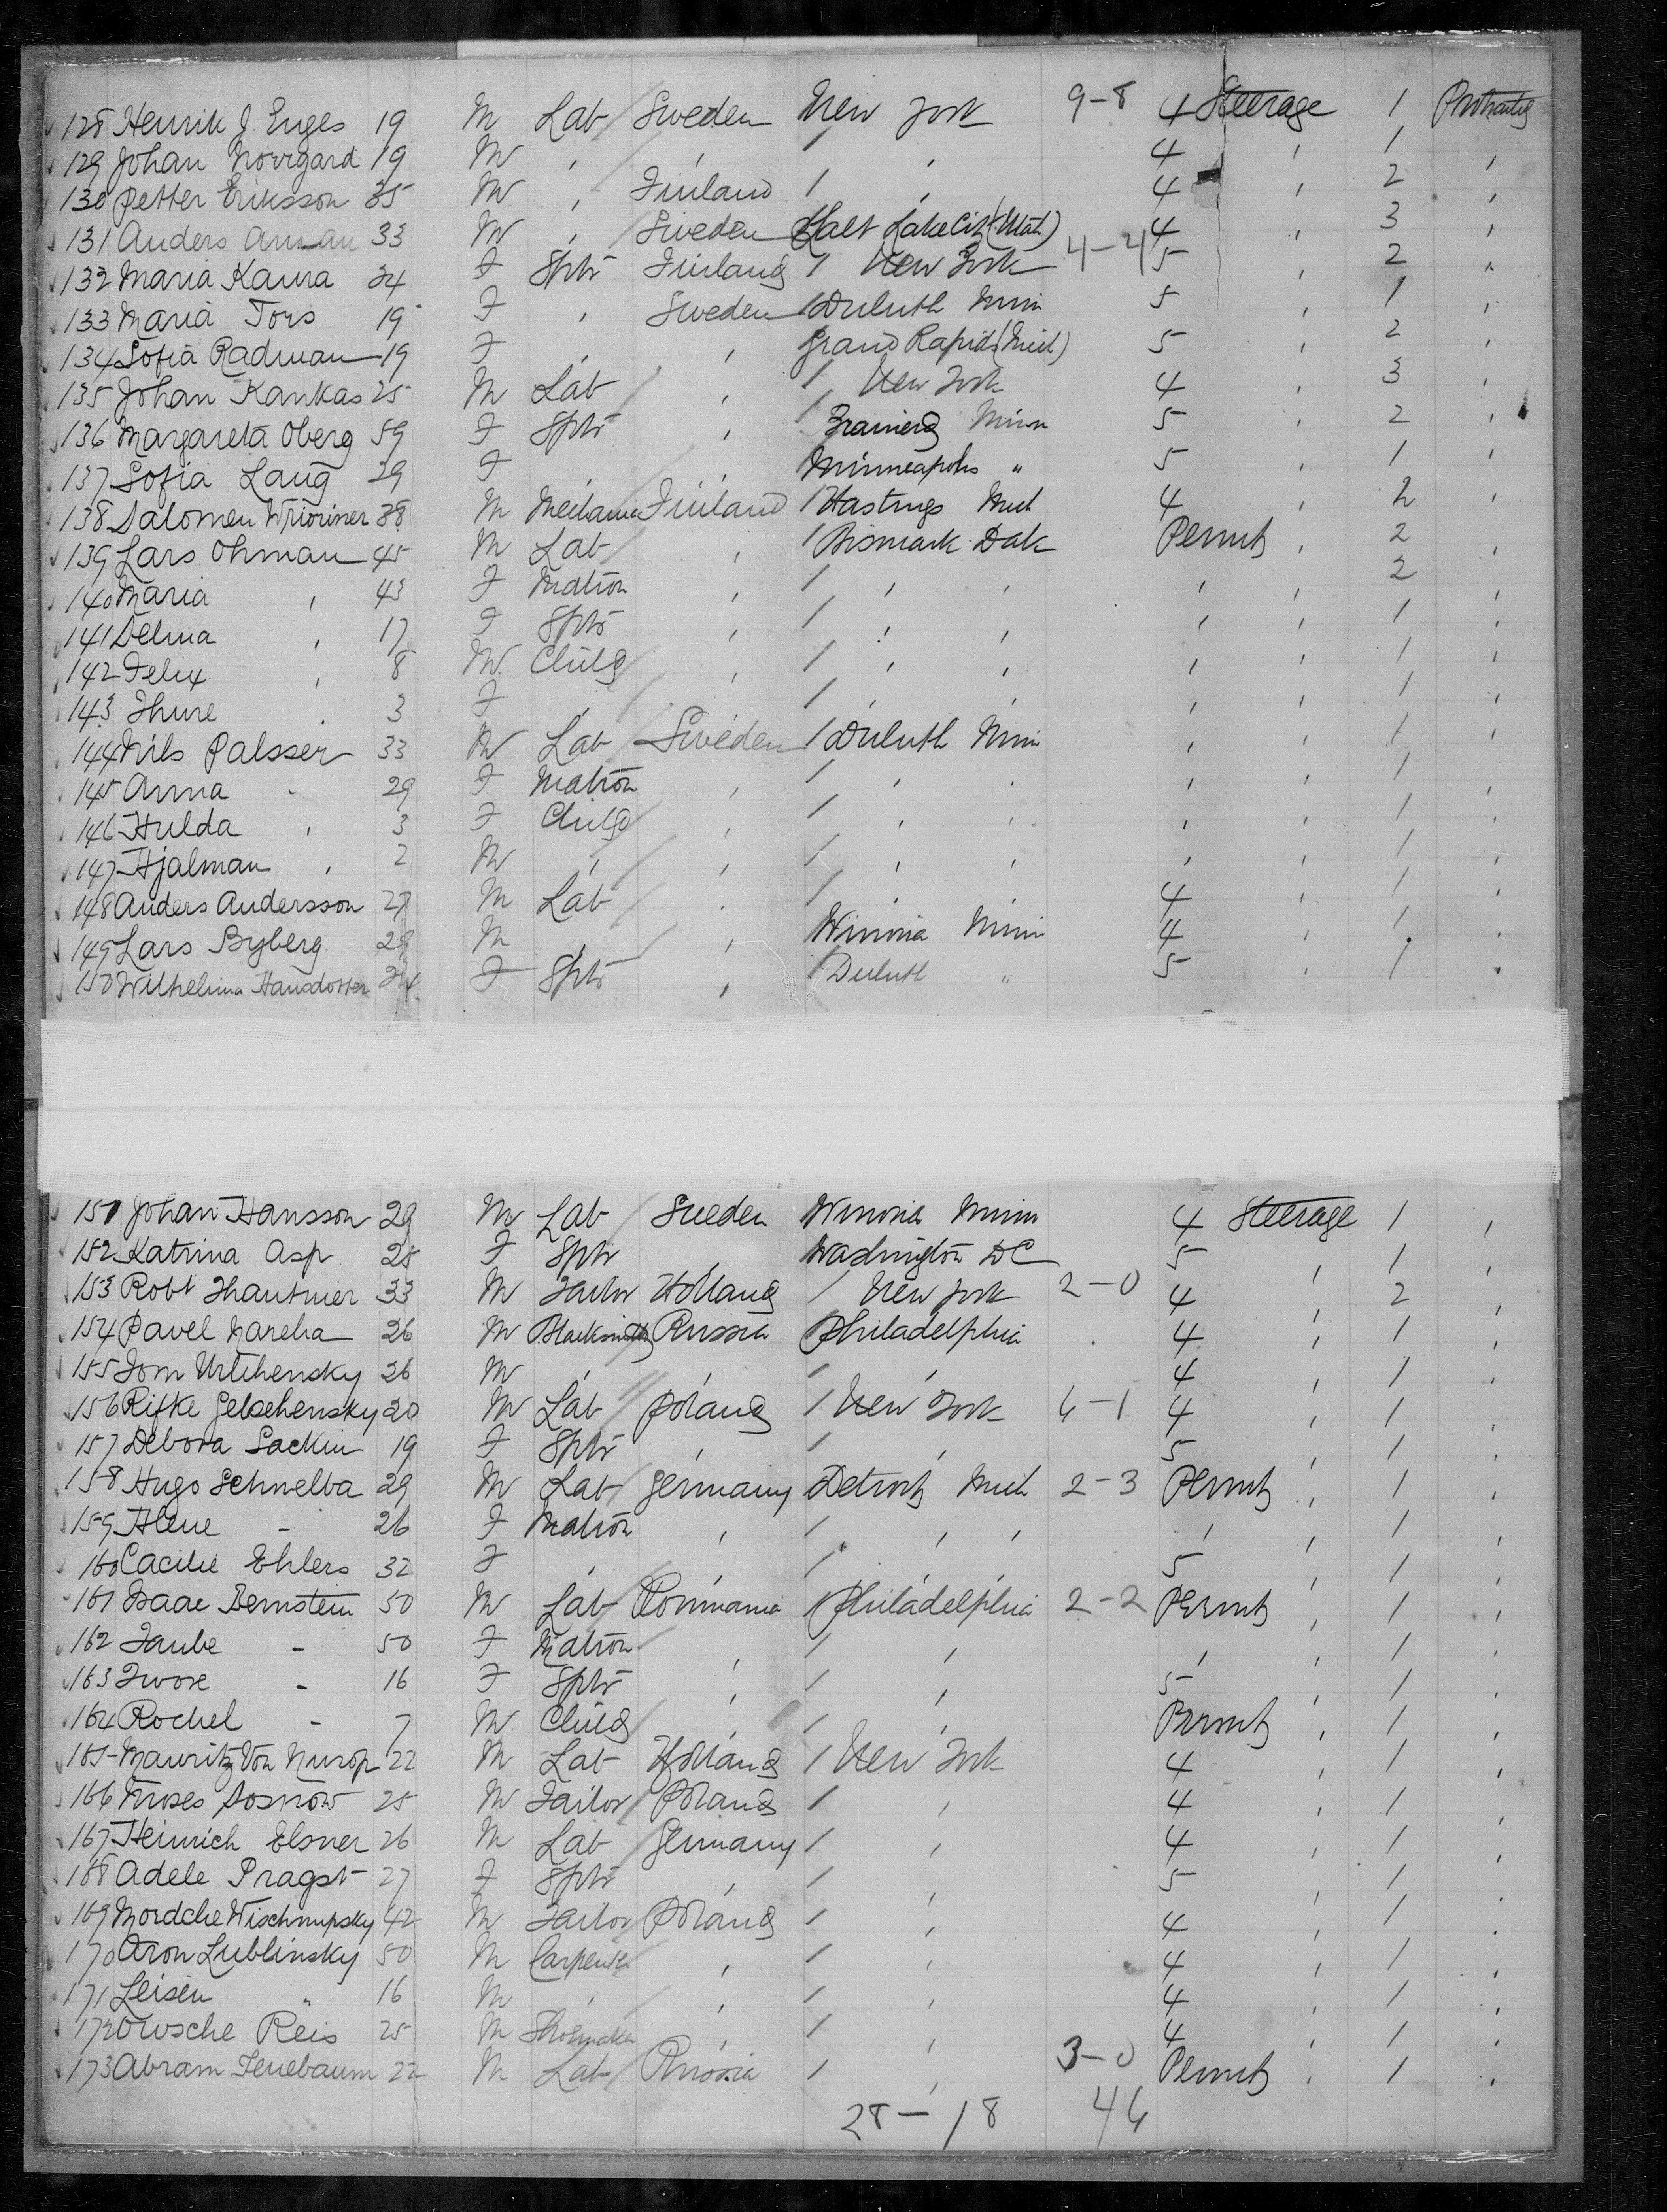 128 Henrik J. Enges 19 M Lab Sweden New York 9-8 4 Steerage 1
129 Johan Norrgard 19 M , , / , 4 , 1 ,
130 Petter Eriksson 35 M , Finland / , 4 , 2 ,
131 Anders 33 M , Sweden Salt Lake City (Utah) 4 , 3 ,
132 Maria Kaura 24 F Sptr Finland / New York 4-4 5 , 2 ,
133 Maria Tors 19 F , Sweden / Duluth Minn 5 , 1 ,
134 Sofia Radman 19 F , , Grand Rapids (Mich) 5 , 2 ,
135 Johan Kankas 25 M Lab , / New York 4 , 3 ,
136 Margareta Oberg 59 F Sptr , / Brainerd Minn 5 , 2 ,
137 Sofia Lang 29 F , , Minneapolis " 5 , 1 ,
138 Salomen 38 M Mechanic Finland / Hastings Mich 4 , 2 ,
139 Lars Ohman 45 M Lab , / Bismark Dak Permit , 2 ,
140 Maria , 43 F Matron , / , , , , 2 ,
141 Selma , 17 F Sptr , / , , , , 1 ,
142 Felix , 8 M Child , / , , , , 1 ,
143 Thure , 3 F , , / , , , , 1 ,
144 Nils Palsser 33 M Lab Sweden / Duluth Minn , , 1 ,
145 Anna - 29 F Matron , / , , , , 1 ,
146 Hulda , 3 F Child , / , , , , 1 ,
147 Hjalman , 2 M , , / , , , , 1 ,
148 Anders Andersson 27 M Lab , / , , 4 , 1 ,
149 Lars Byberg 28 M , , Winona Minn 4 , 1 ,
150 Wilhelmina Hansdotter 24 F Sptr , / Duluth " 5 , 1 ,
151 Johan Hansson 29 M Lab Sweden Winona Minn 4 Steerage 1 ,
152 Katrina Asp 25 F Sptr , Washington DC 5 , 1 ,
153 Robt Thautmier 33 M Tailor Holland / New York 2-0 4 , 2 ,
154 Pavel Mareha 26 M Blacksmith Russia Philadelphia 4 , 1 ,
155 26 M , , / , 4 , 1 ,
156 Rifke Gelschensky 20 M Lab Poland / New York 6-1 4 , 1 ,
157 Debora Sackin 19 F Sptr , / , 5 , 1 ,
158 Hugo Schnelba 29 M Lab Germany Detroit Mich 2-3 Permit , 1 ,
159 Helene - 26 F Matron , / , , , , 1 ,
160 Cacilie Ehlers 32 F , , / , , 5 , 1 ,
161 Isaac Bernstein 50 M Lab Roumania Philadelphia 2-2 Permit , 1 ,
162 Taube - 50 F Matron , / , , , 1 ,
163 - 16 F Sptr , / , 5 , 1 ,
164 Rochel - 7 M Child , / , Permit , 1 ,
165 Mauritz Von Nurop 22 M Lab Holland / New York 4 , 1 ,
166 Moses Sosnow 25 M Tailor Poland / , 4 , 1 ,
167 Heinrich Elsner 26 M Lab Germany / , 4 , 1 ,
168 Adele Pragst 27 F Sptr , / , 5 , 1 ,
169 Mordche Wischnupsky 42 M Tailor Poland / , 4 , 1 ,
170 Aron Lublinsky 50 M Carpenter , / , 4 , 1 ,
171 Leisen " 16 M , , / , 4 , 1 ,
172 Owsche Reis 25 M Shoemaker , / , 4 , 1 ,
173 Abram Tenebaum 22 M Lab Russia / , 3-0 Permit , 1 ,
28-18 46